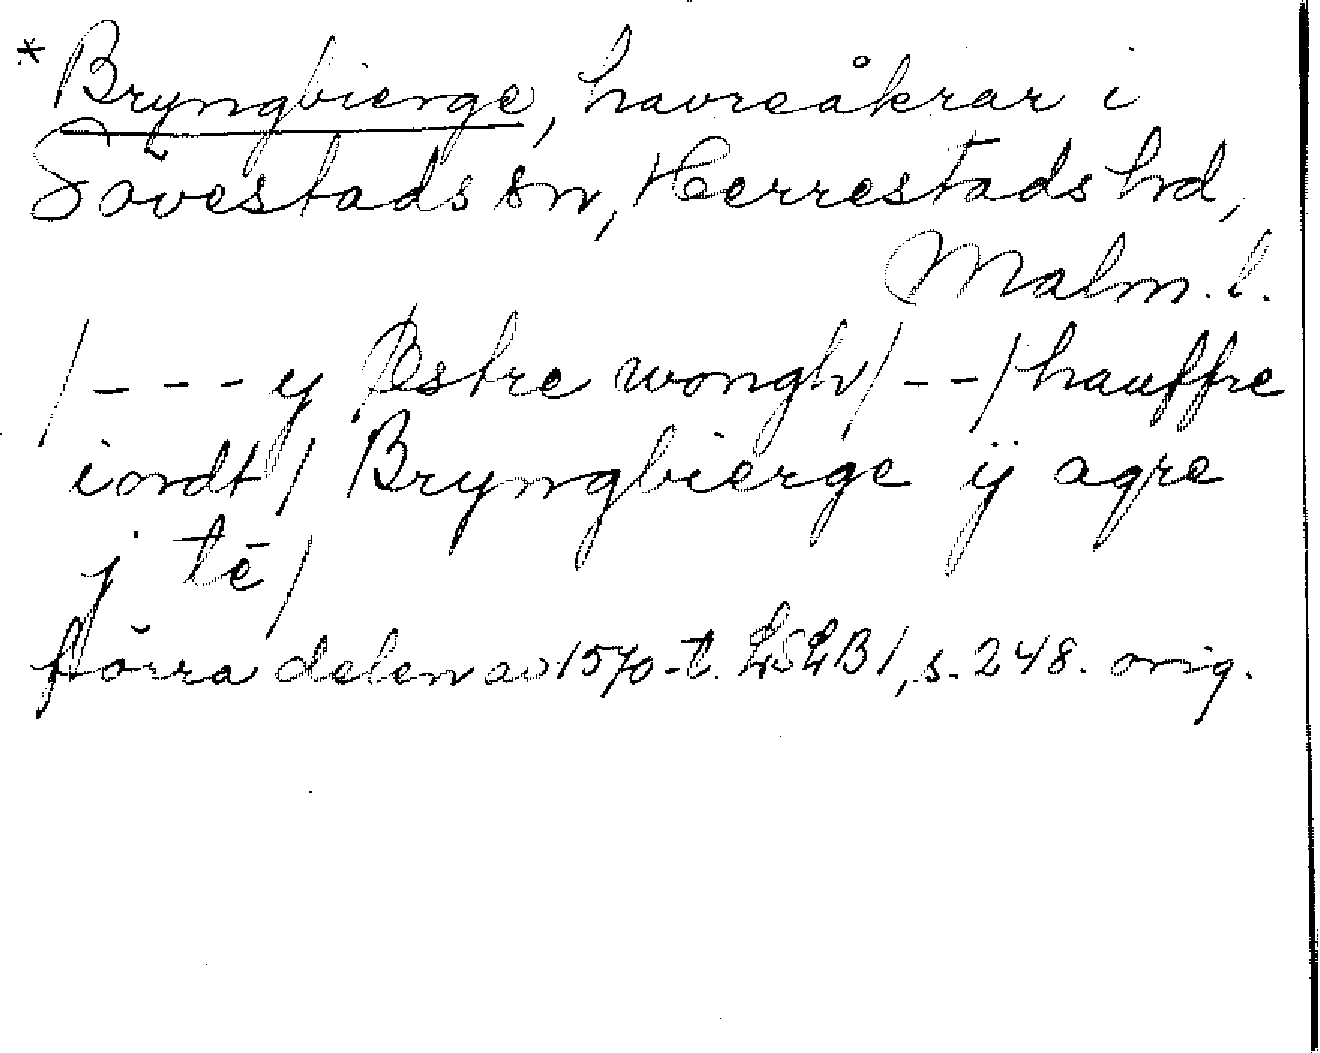 *Bryngbierge, havreåkrar i
Sövestads sn, Herrestads hd,
Malm. l.
/ - - - y Østre wongh / - - / hauffre
iordt / Bryngbierge ij agre
j tē /
förra delen av 1570-t. LSLB 1, s. 248. orig.